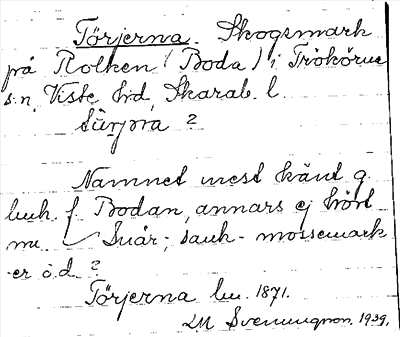 Törjerna. Skogsmark
på Rolken (Boda) i Trökörna
s.n, Viste hd, Skarab. l.
Namnet mest känt g.
f. Bodan, annars ej hört
nu. Snår-, sank- mossemark
er o.d. ?
Törjerna 1871.
LM Svenungson. 1939.